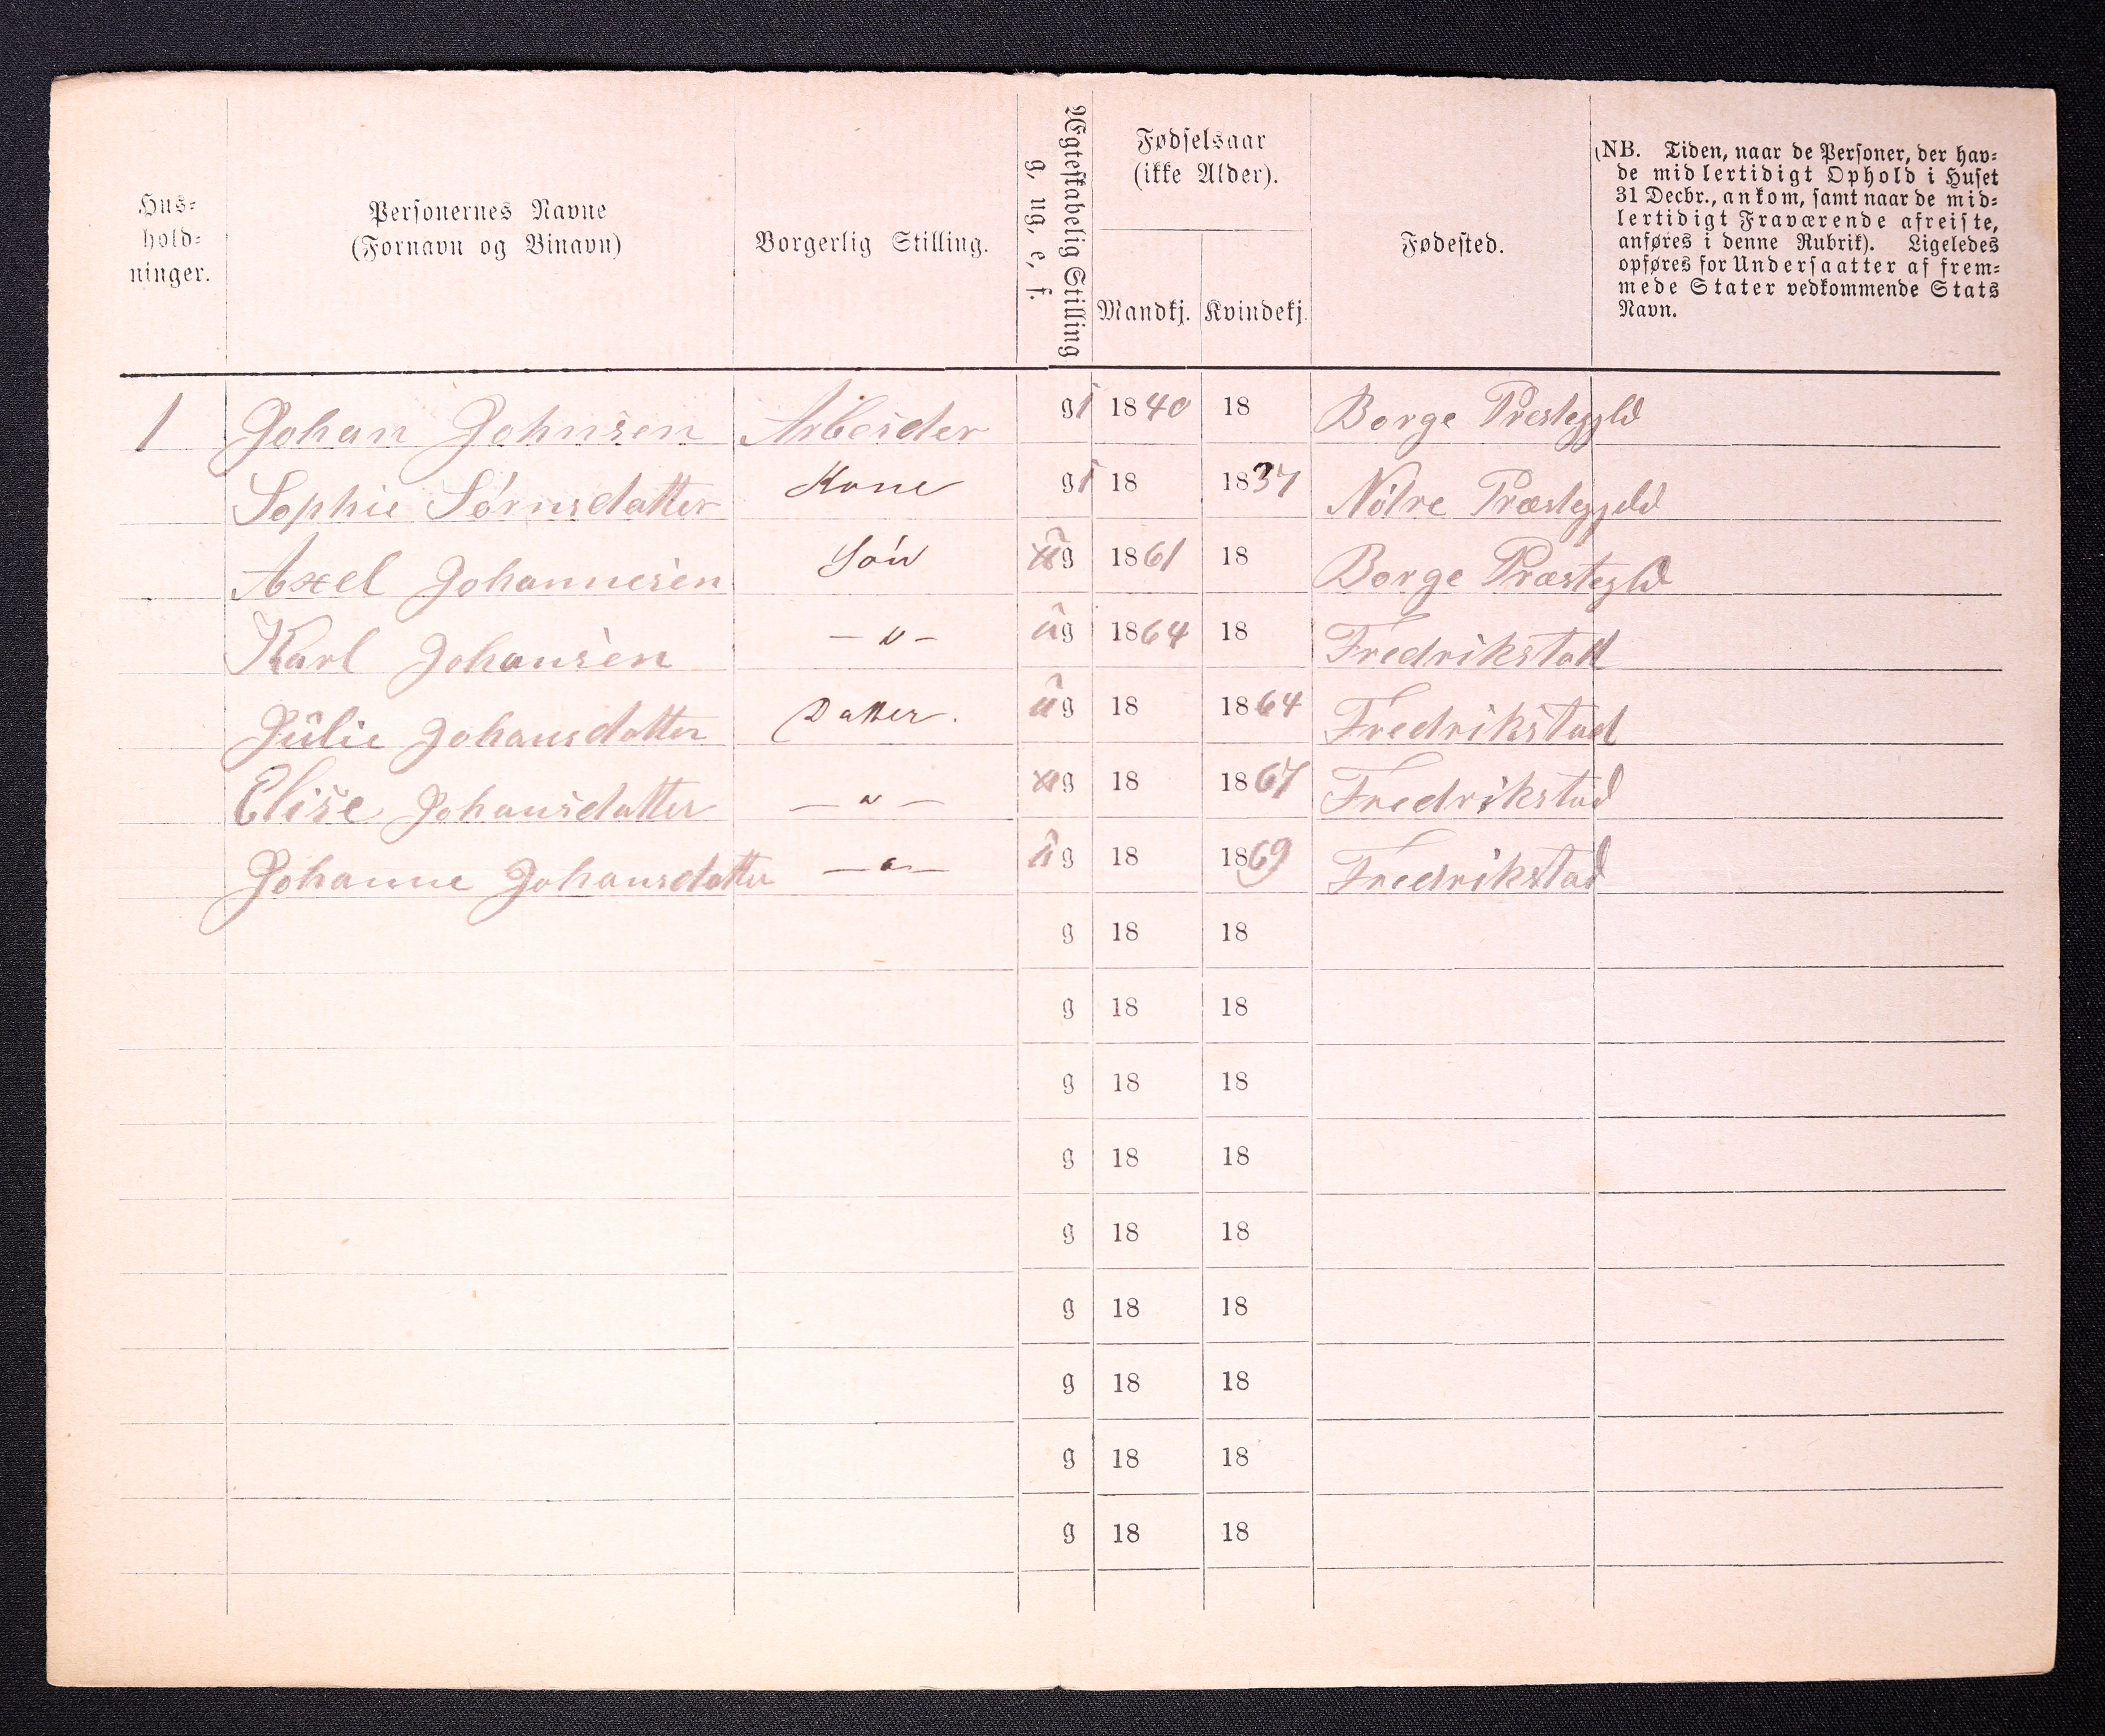 Hus-
hold-
ninger.
Personernes Navne
(Fornavn og Binavn)
Borgerlig Stilling.
Ægteskabelig Stilling
g, ug, e, f.
Fødselsaar
(ikke Alder).
Mandkj. Kvindekj.
Fødested.
(NB. Tiden, naar de Personer, der hav-
de midlertidigt Ophold i Huset
31 Decbr., ankom, samt naar de mid-
lertidigt Fraværende afreiste,
anføres i denne Rubrik). Ligeledes
opføres for Undersaatter af frem-
mede Stater vedkommende Stats
Navn.
1 Johan Johnsen Arbeider g 1840 18 Borge Prestegjld
Sophie Sørnsdatter Kone g 18 1837 Præstegjeld
Axel Johannesen Søn ug 1861 18 Borge Præstegjld
Karl Johansen — " — ug 1864 18 Fredrikstad
Julie Johansdatter Datter. ug 18 1864 Fredrikstad
Elise Johansdatter — " — ug 18 1867 Fredrikstad
Johanne Johansdatter — " — ug 18 1869 Fredrikstad
g 18 18
g 18 18
g 18 18
g 18 18
g 18 18
g 18 18
g 18 18
g 18 18
g 18 18